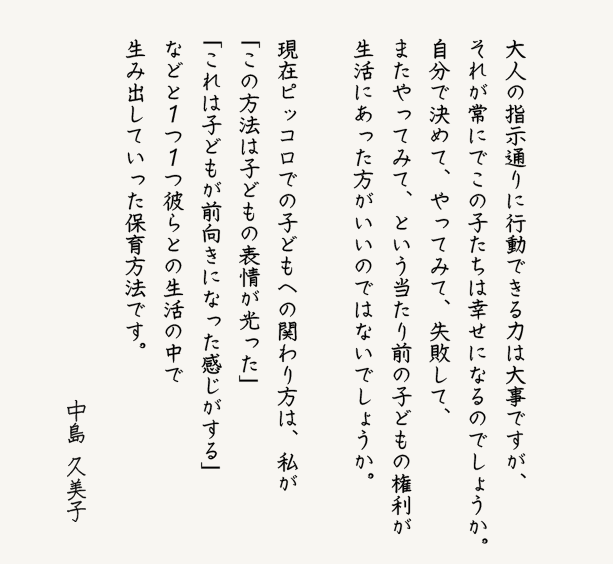 大人の指示通りに行動できる力は大事ですが、
それが常にでこの子たちは幸せになるのでしょうか。
自分で決めて、やってみて、失敗して、
またやってみて、という当たり前の子どもの権利が
生活にあった方がいいのではないでしょうか。
現在ピッコロでの子どもへの関わり方は、私が
「この方法は子どもの表情が光った」
「これは子どもが前向きになった感じがする」
などと1つ1つ彼らとの生活の中で
生み出していった保育方法です。
中島 久美子